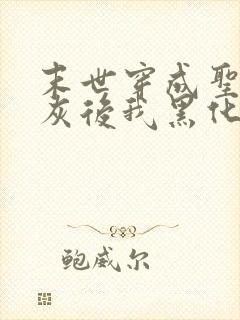 末世穿成聖
灰後我黑化
鲍威尔